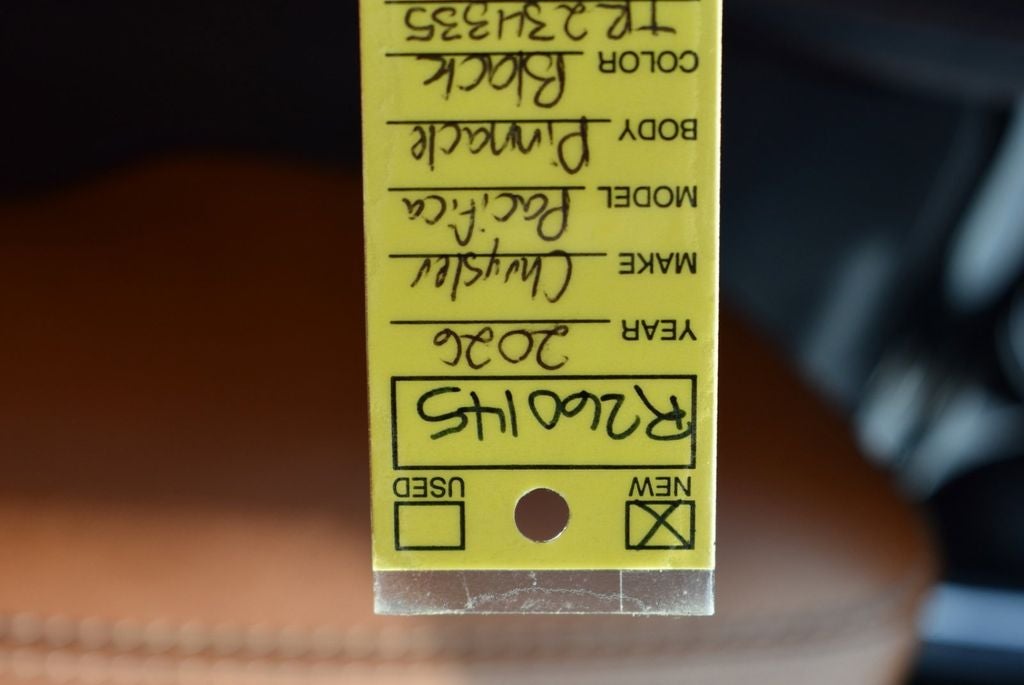 NEW USED
R260145
YEAR 2026
MAKE Chrysler
MODEL Pacifica
BODY Pinnacle
COLOR Black
TR234335